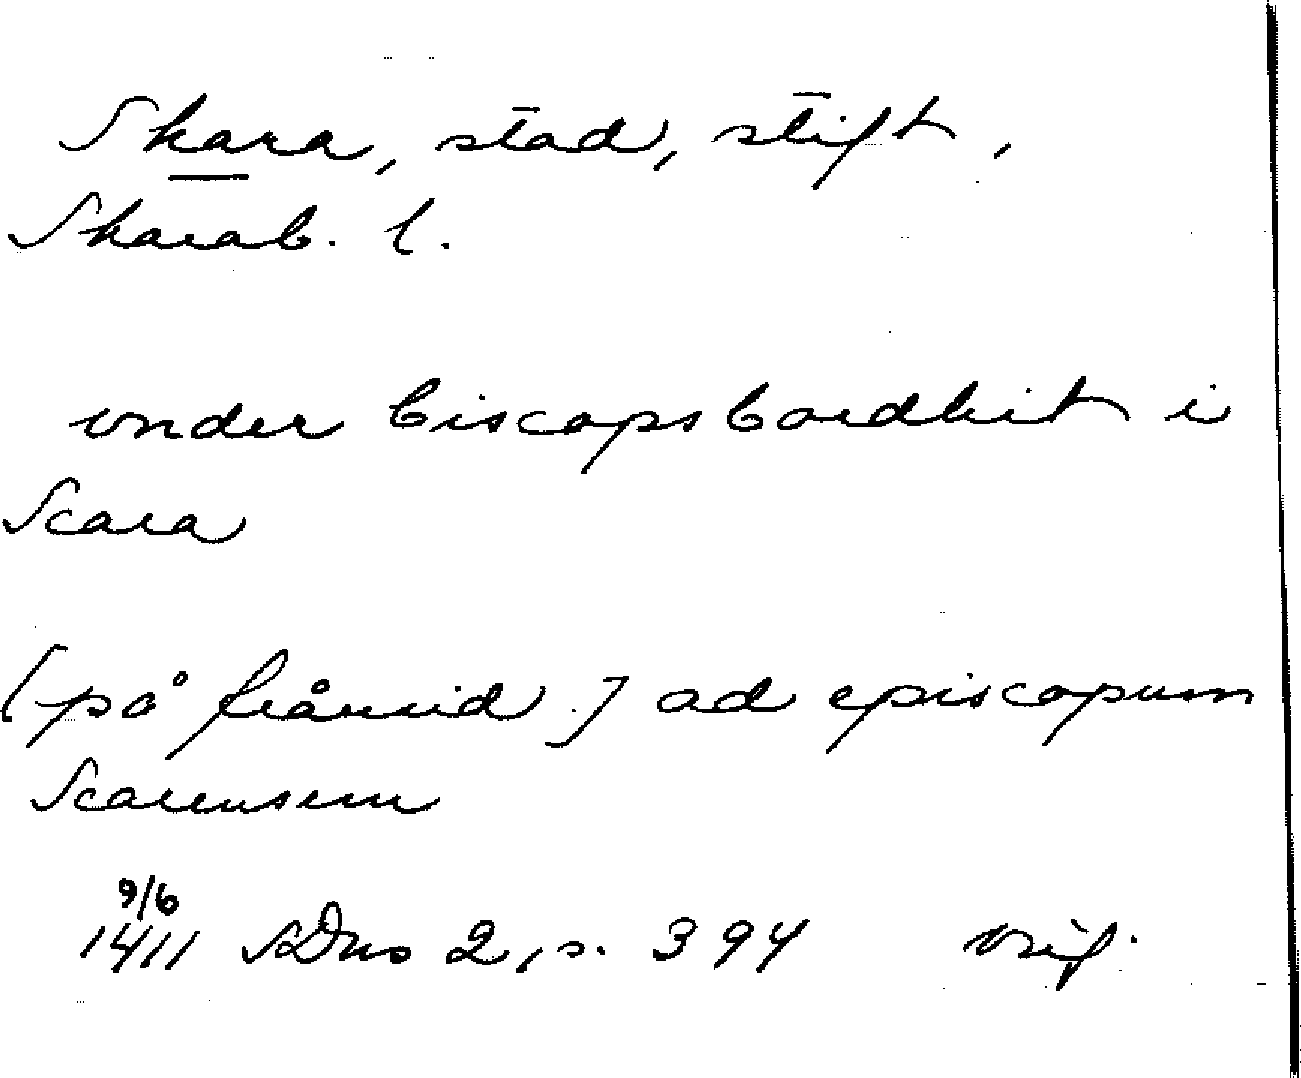 Skara, stad, stift,
Skarab. l.
vnder biscopsbordhit i
Scara
[på frånsid.] ad episcopum
Scarensem
9/6
1411 SDns 2, s. 394 orig.